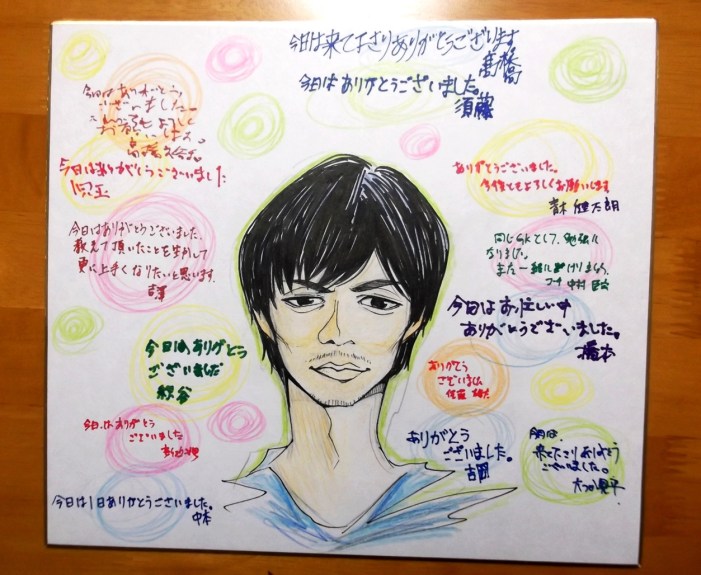 今日は来て下さりありがとうございます
高橋
今日はありがとうございました。
須藤
今日は ありがとう
ございました
今日はありがとうございました
児玉
今日はありがとうございました。
教えて頂いたことを生かして
更に上手くなりたいと思います。
吉澤
今日は、ありがとう
ございました
今日は、ありがとう
ございました
今日は1日ありがとうございました。
中本
ありがとうございました。
今後ともよろしくお願いします
青木 健太朗
同じGKとして、勉強に
なりました。
また一緒に
中村
今日はお忙しい中
ありがとうございました。
橋本
ありがとう
ございました
佐藤
ありがとう
ございました。
吉岡
今日は、
来て下さりありがとう
ございました。